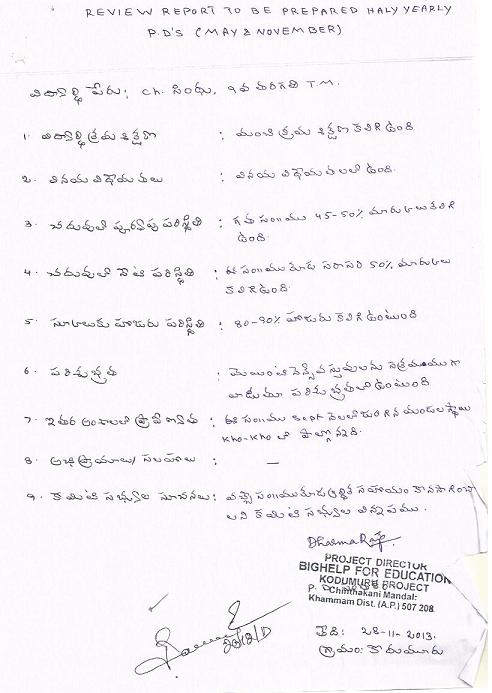 REVIEW REPORT TO BE PREPARED HALY YEARLY
P.D'S (MAY & NOVEMBER)
విద్యార్థి పేరు: ch. సింధు, 9వ తరగతి T.M.
1. విద్యార్థి క్రమశిక్షణ : మంచి క్రమశిక్షణ కలిగి ఉంది
2. వినయ విధేయతలు : వినయ విధేయతలతో ఉంది.
3. చదువులో పూర్వపు పరిస్థితి : గత సం॥ము 45-50% మార్కులు కలిగి
ఉంది.
4. చదువులో నేటి పరిస్థితి : ఈ సం॥ము కూడ సరాసరి 50% మార్కులు
కలిగి ఉంది.
5. స్కూలుకు హాజరు పరిస్థితి : 80-90% హాజరు కలిగి ఉంటుంది
6. పరిశుభ్రత : మెయింటెనెన్స్ వస్తువులను సక్రమముగా
వాడుతూ పరిశుభ్రతతో ఉంటుంది
7. ఇతర అంశాలలో ప్రావీణ్యత : ఈ సం॥ము Sept నెలలో జరిగిన మండల స్థాయి
Kho-Kho లో పాల్గొన్నది.
8. అభిప్రాయాలు/సలహాలు : —
9. కమిటి సభ్యుల సూచనలు : వచ్చే సం॥ము కూడ ఆర్థిక సహాయం కొనసాగించా
లని కమిటి సభ్యుల విన్నపము.
PROJECT DIRECTOR
BIGHELP FOR EDUCATION
KODUMURU PROJECT
Chinthakani Mandal:
Khammam Dist. (A.P.) 507 208.
తేది: 28-11-2013.
గ్రామం: కొదుమూరు